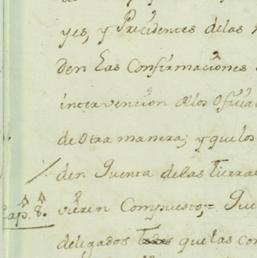 yes, y Precidentes de las
den Las Confirmacion̄s
intervencion de los Oficial
de Otra manera; y que los
den Quenta de las tierras
Cap. 8. vieren Compuesto,= Que
delegados todos que las con